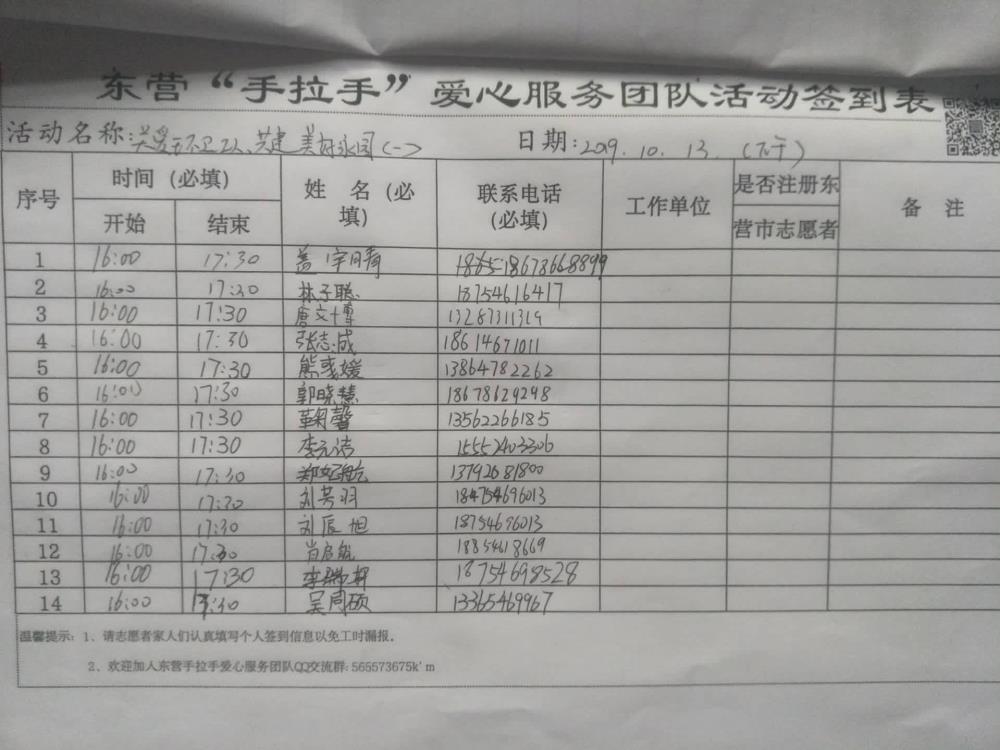 东营“手拉手”爱心服务团队活动签到表
活动名称:关爱环卫工人、共建美好家园(一) 日期:2019.10.13.(下午)
序号 时间 (必填) 姓 名 (必填) 联系电话 (必填) 工作单位 是否注册东营市志愿者 备 注
开始 结束
1 16:00 17:30 盖 18678668899
2 16:00 17:30 林子聪 18754616417
3 16:00 17:30 唐文博 13287311319
4 16:00 17:30 张志成 18614671011
5 16:00 17:30 熊彧媛 13864782262
6 16:00 17:30 郭晓慧 18678629298
7 16:00 17:30 鞠馨 13562266185
8 16:00 17:30 李元洁 15552403306
9 16:00 17:30 郑妃航 13792681800
10 16:00 17:30 刘芳羽 18754696013
11 16:00 17:30 刘辰旭 18754696013
12 16:00 17:30 肖启航 18854618669
13 16:00 17:30 李瑞 18754698528
14 16:00 17:30 吴周硕 13365469967
温馨提示: 1、请志愿者家人们认真填写个人签到信息以免工时漏报。
2、欢迎加入东营手拉手爱心服务团队QQ交流群: 565573675k'm